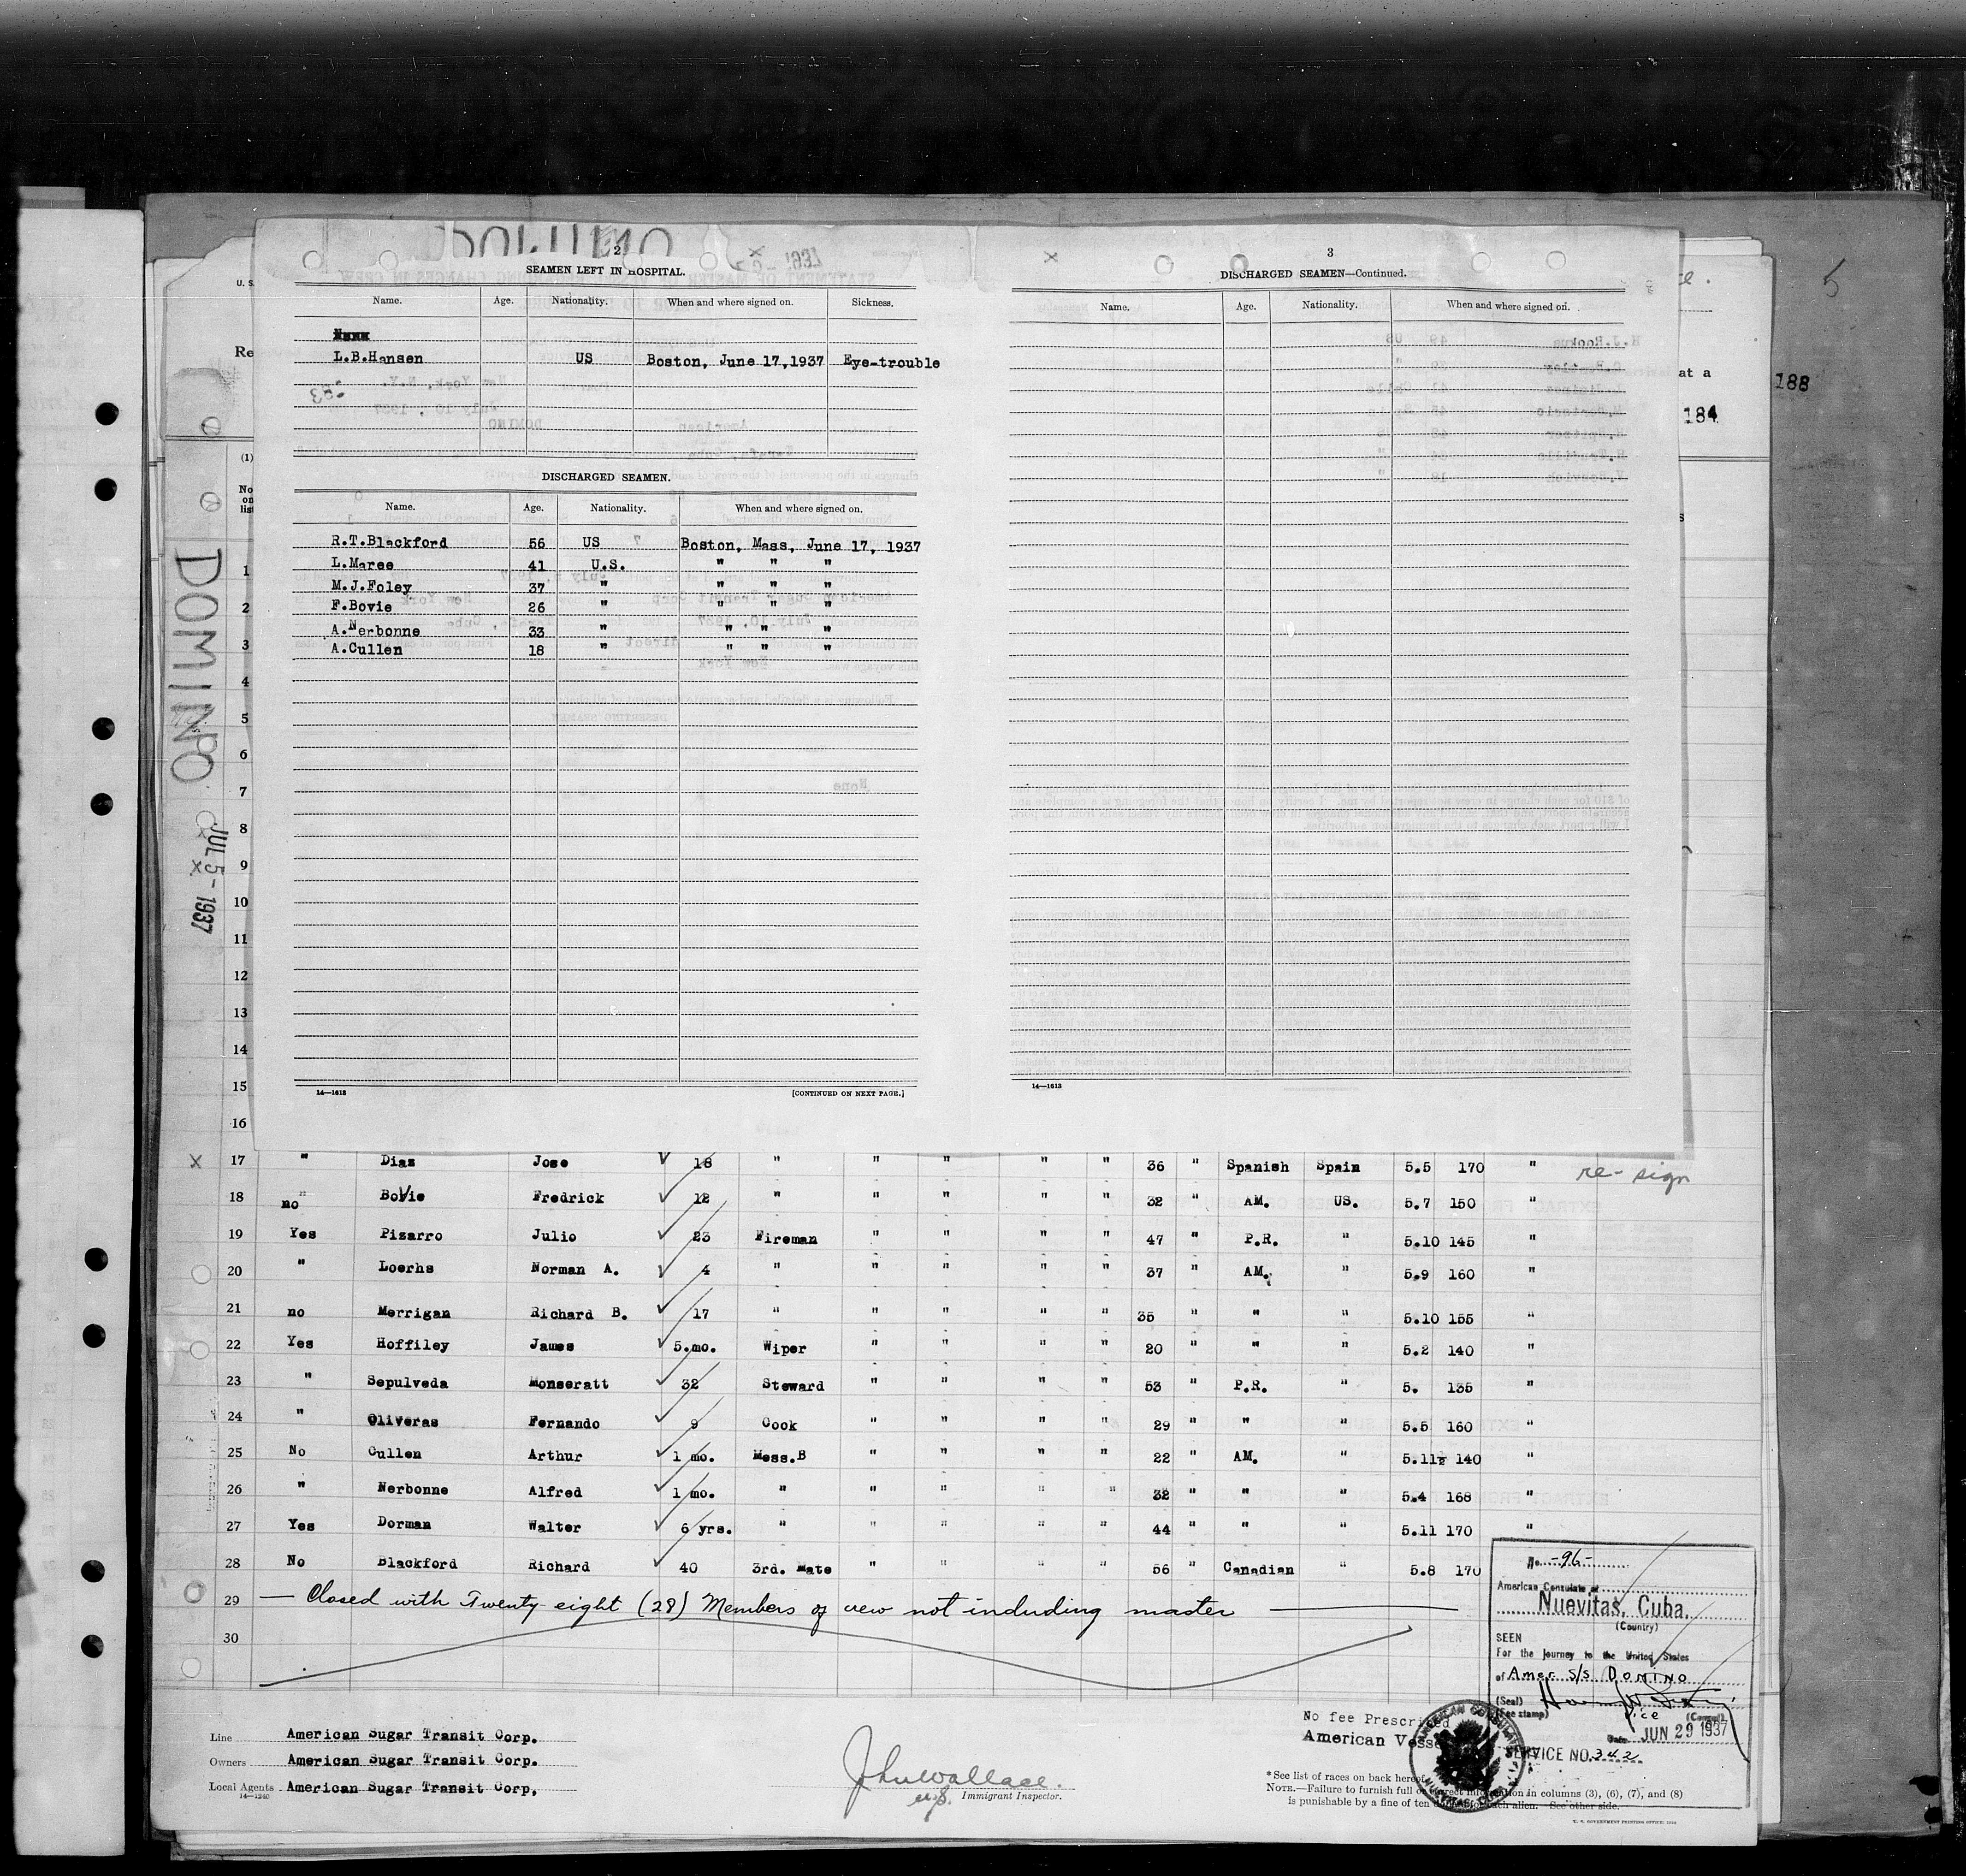 2
SEAMEN LEFT IN HOSPITAL.
Name. Age. Nationality. When and where signed on. Sickness.
L.B.Hansen US Boston, June 17,1937 Eye-trouble
DISCHARGED SEAMEN.
Name. Age. Nationality. When and where signed on.
R.T.Blackford 56 US Boston, Mass, June 17, 1937
L.Maree 41 U.S. " " "
M.J.Foley 37 " " " "
F.Bovie 26 " " " "
A.Nerbonne 33 " " " "
A.Cullen 18 " " " "
14—1613 [CONTINUED ON NEXT PAGE.]
3
DISCHARGED SEAMEN—Continued.
Name. Age. Nationality. When and where signed on.
14—1613
5
at a
188
184
U. S.
Re
(1)
No
on
list
DOMINO
JUL 5 - 1937
1
2
3
4
5
6
7
8
9
10
11
12
13
14
15
16
x 17 " Diaz Jose 18 " " " " " 36 " Spanish Spain 5.5 170 " re-sign
18 " no Bovie Fredrick 12 " " " " " 32 " AM. US. 5.7 150 "
19 Yes Pizarro Julio 23 Fireman " " " " 47 " P.R. " 5.10 145 "
20 " Loerhs Norman A. 4 " " " " " 37 " AM. " 5.9 160 "
21 no Merrigan Richard B. 17 " " " " " 35 " " " 5.10 155 "
22 Yes Hoffiley James 5.mo. Wiper " " " " 20 " " " 5.2 140 "
23 " Sepulveda Monseratt 32 Steward " " " " 53 " P.R. " 5. 135 "
24 " Oliveras Fernando 9 Cook " " " " 29 " " " 5.5 160 "
25 No Cullen Arthur 1 mo. Mess.B " " " " 22 " AM. " 5.11½ 140 "
26 " Nerbonne Alfred 1 mo. " " " " " 32 " " " 5.4 168 "
27 Yes Dorman Walter 6 yrs. " " " " " 44 " " " 5.11 170 "
28 No Blackford Richard 40 3rd. Mate " " " " 56 " Canadian " 5.8 170
29 — Closed with Twenty eight (28) Members of crew not including master —
30
No. -96-
American Consulate at
Nuevitas, Cuba.
(Country)
SEEN
For the journey to the United States
of Amer. S/S DOMINO
(Seal)
(Fee stamp) Vice (Consul)
Date JUN 29 1937
SERVICE NO. 342
No fee Prescribed
American Vessel
Line American Sugar Transit Corp.
Owners American Sugar Transit Corp.
Local Agents American Sugar Transit Corp.
14—1240
John Wallace
Immigrant Inspector.
*See list of races on back hereof
NOTE.—Failure to furnish full or correct information in columns (3), (6), (7), and (8)
is punishable by a fine of ten dollars for each alien. See other side.
U. S. GOVERNMENT PRINTING OFFICE